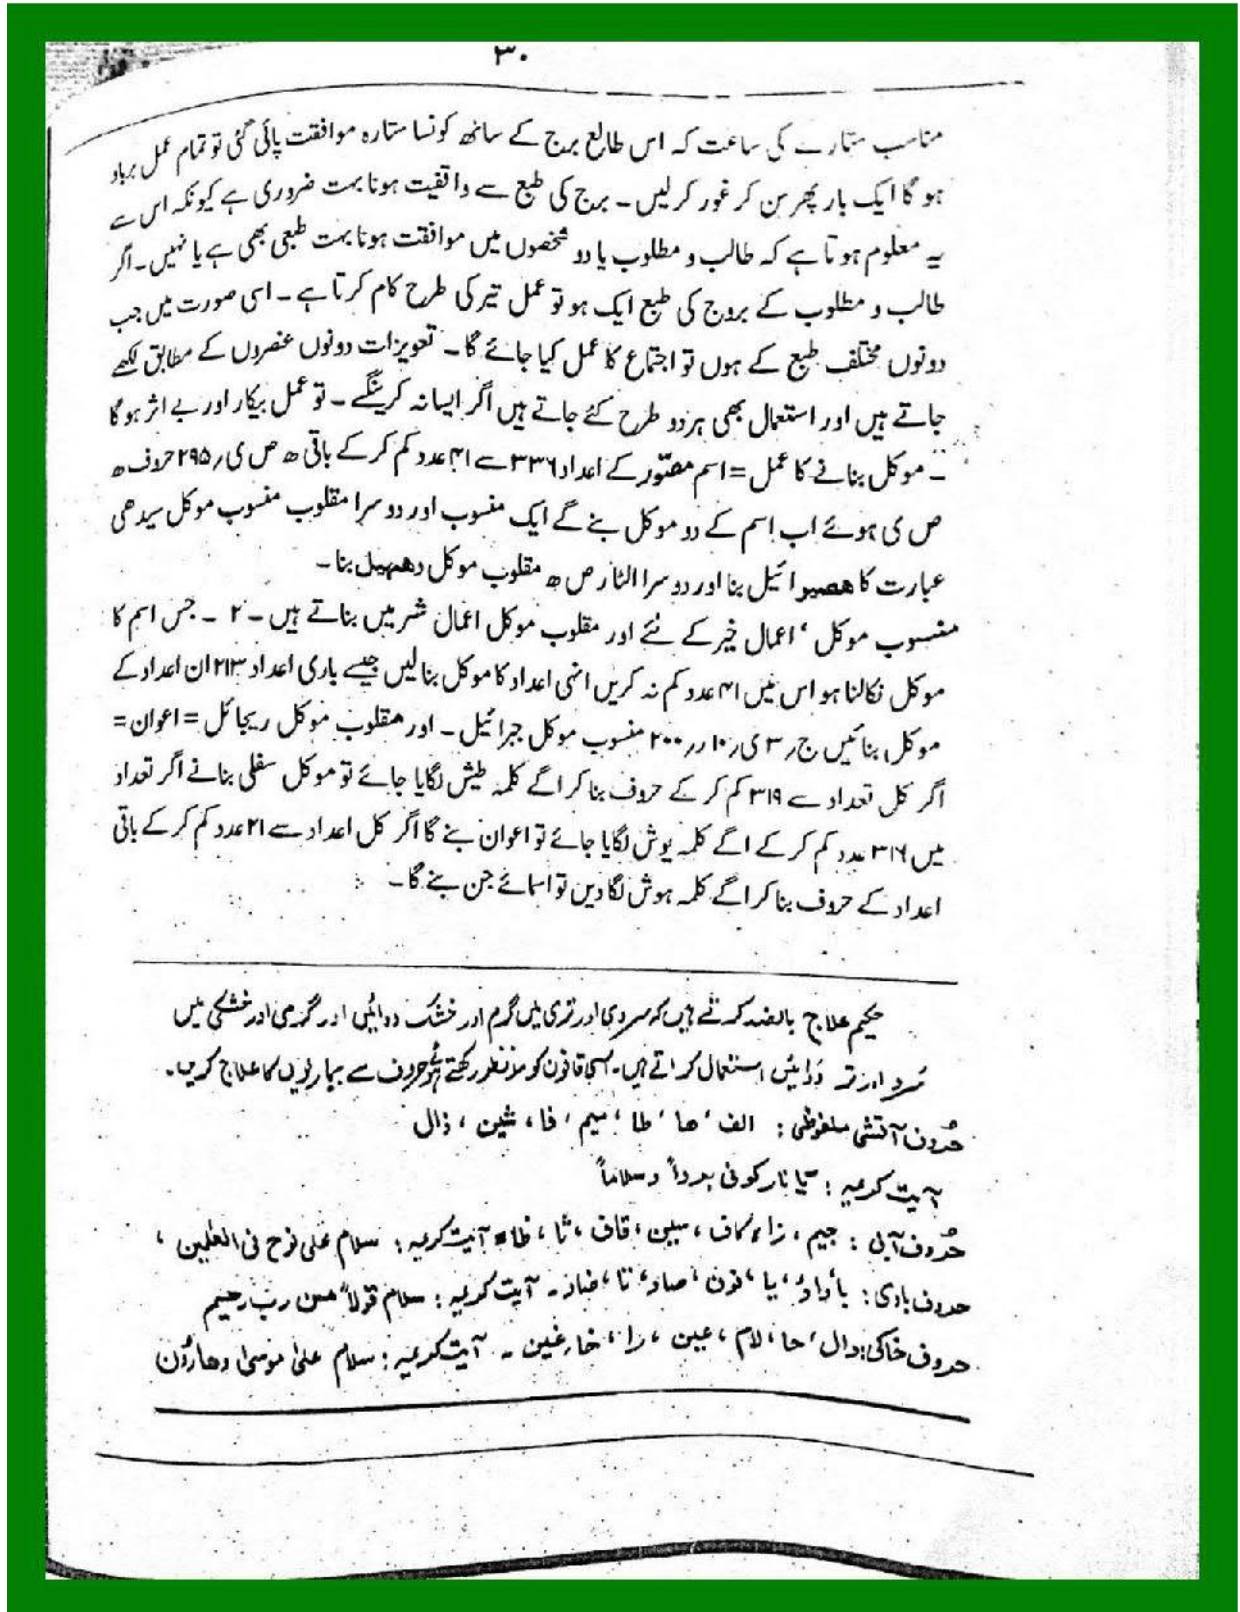 ۳۰
مناسب ستارے کی ساعت کہ اس طالع برج کے ساتھ کونسا ستارہ موافقت پائی گئی تو تمام عمل برباد
ہو گا ایک بار پھر سن کر غور کرلیں ۔ برج کی طبع سے واقفیت ہونا بہت ضروری ہے کیونکہ اس سے
یہ معلوم ہوتا ہے کہ طالب و مطلوب یا دو شخصوں میں موافقت ہونا بہت طبعی بھی ہے یا نہیں ۔ اگر
طالب و مطلوب کے بروج کی طبع ایک ہو تو عمل تیر کی طرح کام کرتا ہے ۔ اسی صورت میں جب
دونوں مختلف طبع کے ہوں تو اجتماع کا عمل کیا جائے گا ۔ تعویزات دونوں عنصروں کے مطابق لکھے
جاتے ہیں اور استعمال بھی ہر دو طرح کئے جاتے ہیں اگر ایسا نہ کرینگے ۔ تو عمل بیکار اور بے اثر ہو گا
۔ موکل بنانے کا عمل = اسم مصّور کے اعداد ۳۳۶ سے ۴۱ عدد کم کر کے باقی ھ ص ی ر ۲۹۵ حروف ھ
ص ی ہوئے اب اسم کے دو موکل بنے گے ایک منسوب اور دوسرا مقلوب منسوب موکل سیدھی
عبارت کا ھصیرائیل بنا اور دوسرا الٹا ر ص ھ مقلوب موکل بنا ۔
منسوب موکل ‘ اعمال خیر کے لئے اور مقلوب موکل اعمال شر میں بناتے ہیں ۔ ۲ ۔ جس اسم کا
موکل نکالنا ہو اس میں ۴۱ عدد کم نہ کریں انہی اعداد کا موکل بنا لیں جیسے باری اعداد ۲۱۳ ان اعداد کے
موکل بنائیں ج ر ۳ ی ر ۱۰ ر ر ۲۰۰ منسوب موکل جبرائیل ۔ اور مقلوب موکل ریجائل = اعوان =
اگر کل تعداد سے ۳۱۹ کم کر کے حروف بنا کر اگے کلمہ طیش لگایا جائے تو موکل سفلی بنانے اگر تعداد
میں ۳۱۶ عدد کم کر کے اگے کلمہ یوش لگایا جائے تو اعوان بنے گا اگر کل اعداد سے ۲۱ عدد کم کر کے باقی
اعداد کے حروف بنا کر اگے کلمہ ہوش لگا دیں تو اسمائے جن بنے گا ۔
حکیم علاج بالضد کرتے ہیں کہ سردی اور تری میں گرم اور خشک دوائیں اور گرمی اور خشکی میں
سرد اور تر دوائیں استعمال کراتے ہیں ۔ اسی قانون کو مدنظر رکھتے ہوئے حروف سے بیماریوں کا علاج کریں ۔
حُروف آتشی ملفوظی : الف ‘ ھا ‘ طا ‘ میم ‘ فا ، شین ، ذال
آیت کریمہ : یا نار کونی برداً و سلاماً
حُروف آبی : جیم ، زا ، کاف ، سین ، قاف ، ثا ، ظا ۔ آیت کریمہ : سلام علی نوح فی العلمین ،
حروف بادی : با ‘ واؤ ‘ یا ‘ نون ‘ صاد ‘ تا ‘ ضاد ۔ آیت کریمہ : سلام قولاً من رب رحیم
حروف خاکی : دال ‘ حا ، لام ، عین ، را ، خا ، غین ۔ آیت کریمہ : سلام علیٰ موسیٰ وھارُون